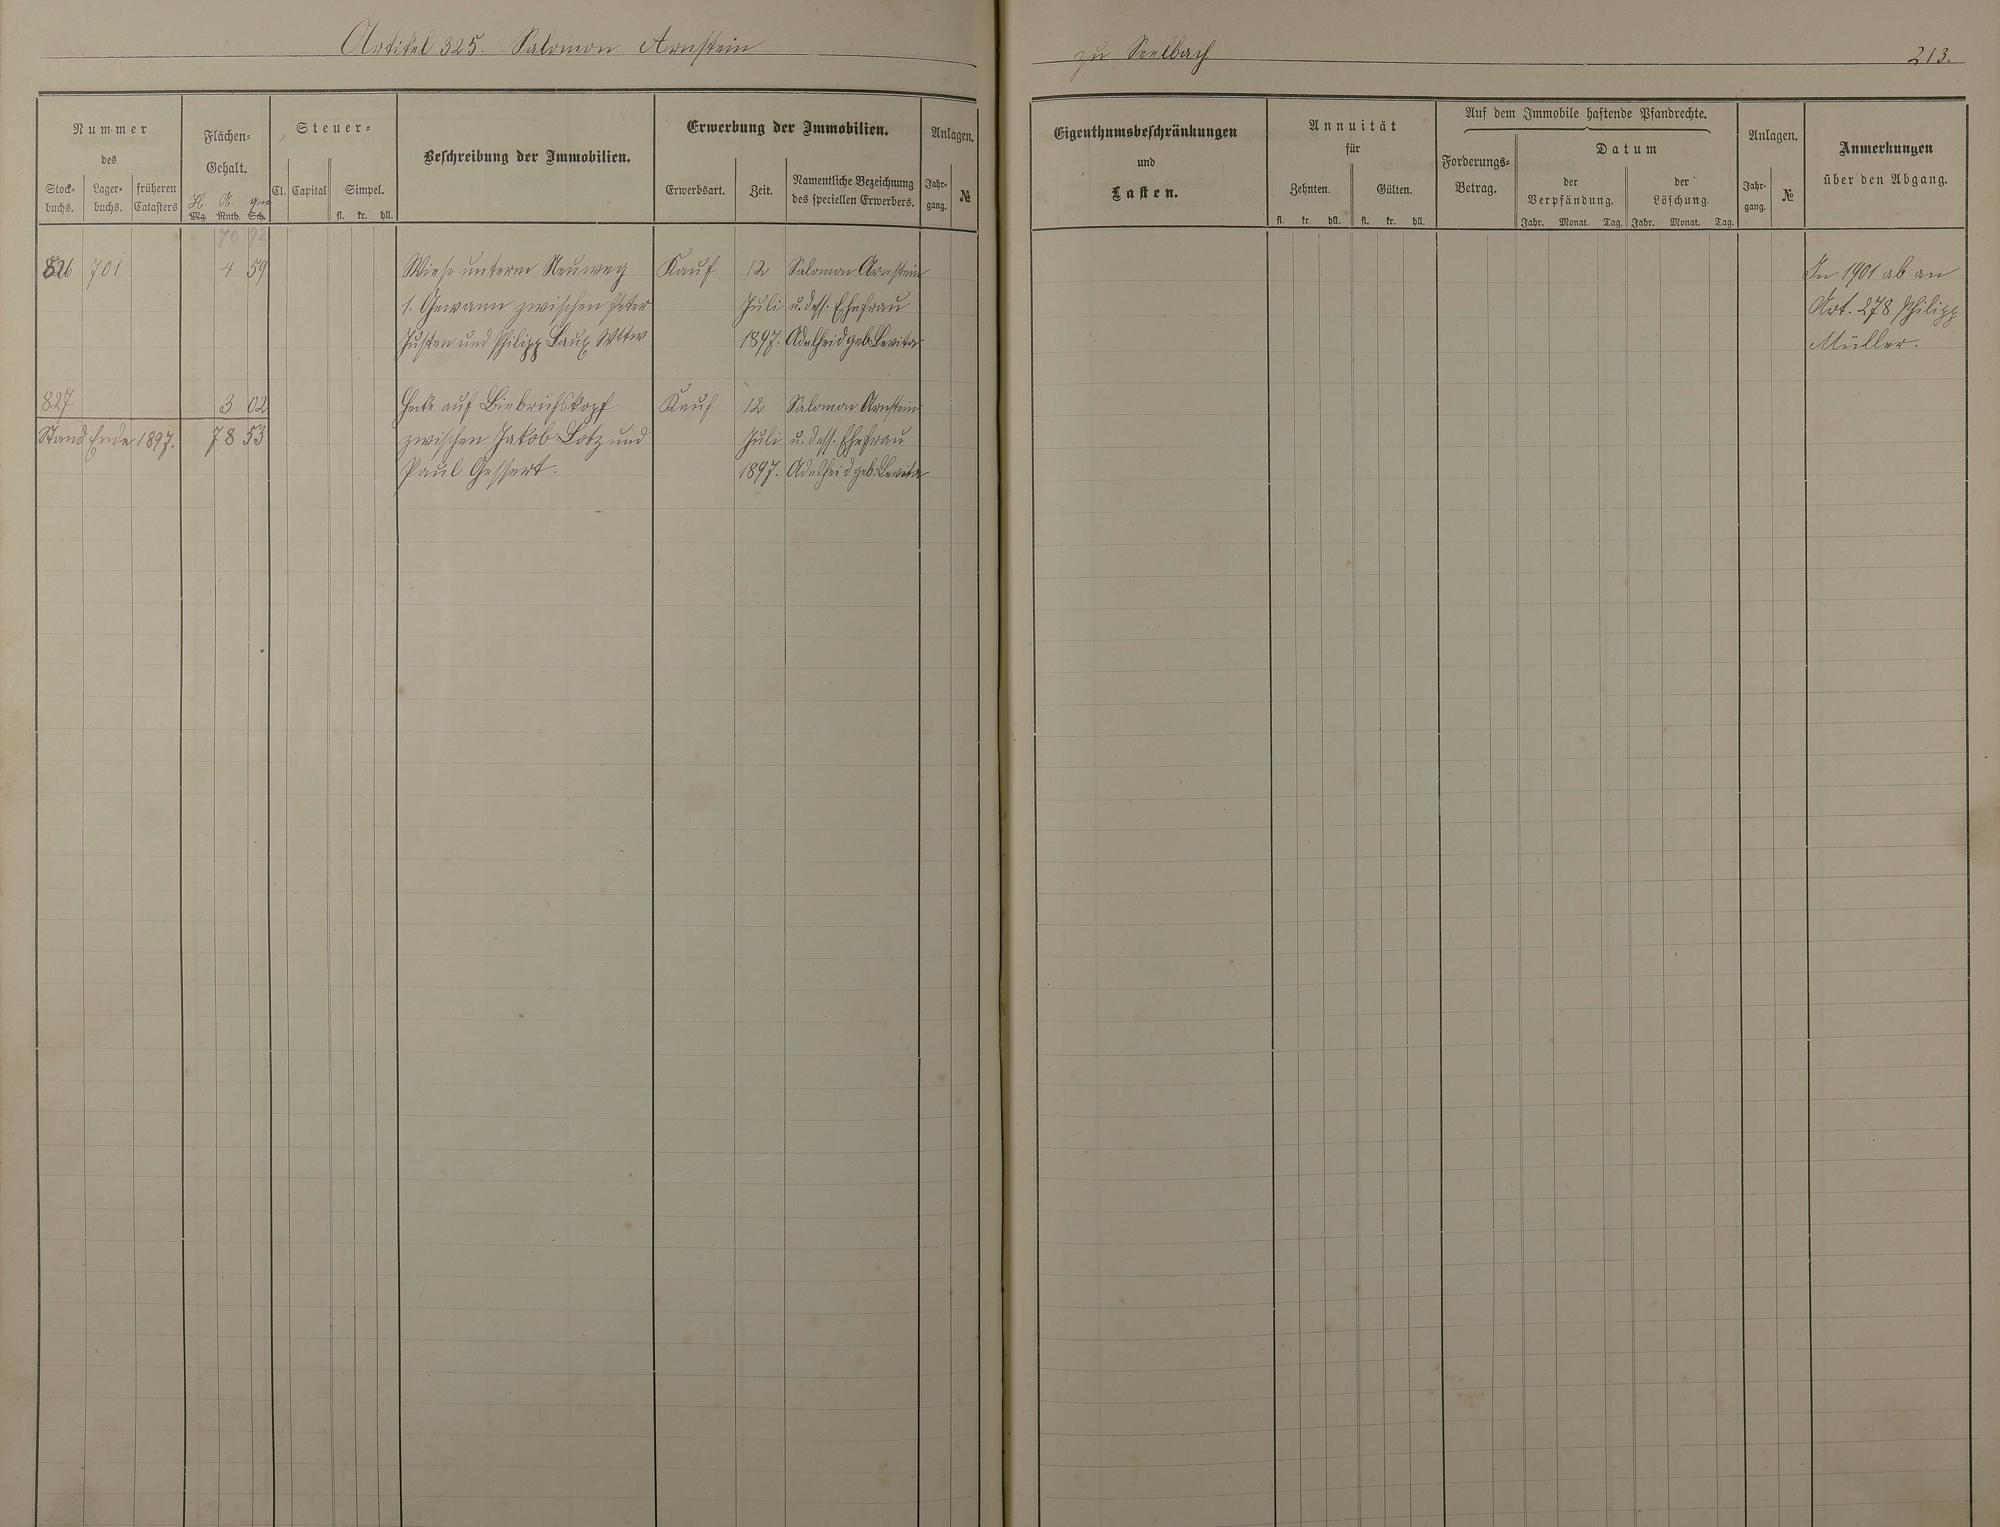 Artikel 325. Salomon Arnstein
zu Seelbach
213.
Nummer
des
Stock-
buchs.
Lager-
buchs.
früheren
Catasters
Flächen-
Gehalt.
H. A. qm
Mg. Rth. Sch.
Steuer-
Cl. Capital Simpel.
fl. kr. hll.
Beschreibung der Immobilien.
Erwerbung der Immobilien.
Erwerbsart. Zeit.
Namentliche Bezeichnung
des speciellen Erwerbers.
Anlagen.
Jahr-
gang.
№
Eigenthumsbeschränkungen
und
Lasten.
Annuität
für
Zehnten. Gülten.
fl. kr. hll. fl. kr. hll.
Auf dem Immobile haftende Pfandrechte.
Forderungs-
Betrag.
Datum
der
Verpfändung.
der
Löschung
Jahr. Monat. Tag. Jahr. Monat. Tag.
Anlagen.
Jahr-
gang.
№
Anmerkungen
über den Abgang.
70 92
826 701 4 59 Wiese unterm Neuweg Kauf 12 Salomon Arnstein In 1901 ab an
1. Gewann zwischen Peter Juli u. dess. Ehefrau Art. 278 Philipp
Justen und Philipp Laux Wttw 1897. Adelheid geb. Levita Müller.
827 3 02 Hecke auf Biebrichskopf Kauf 12 Salomon Arnstein
Stand Ende 1897. 78 53 zwischen Jakob Lotz und Juli u. dess. Ehefrau
Paul Gessert. 1897. Adelheid geb. Levita